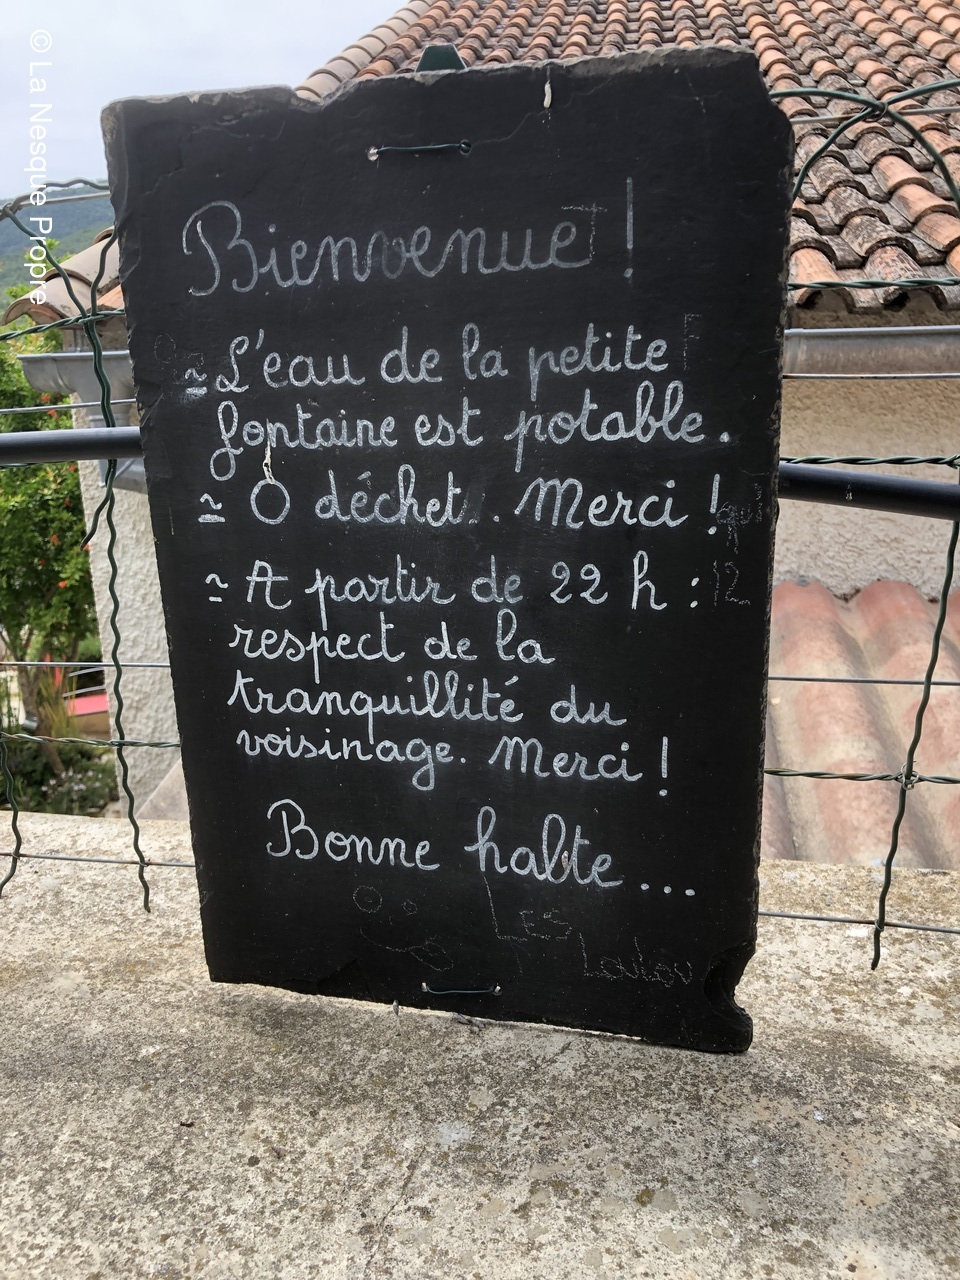 © La Nesque Propre
Bienvenue !
~ L'eau de la petite
fontaine est potable.
~ O déchet... Merci !
~ A partir de 22 h :
respect de la
tranquillité du
voisinage. Merci !
Bonne halte...
Les
Loulou